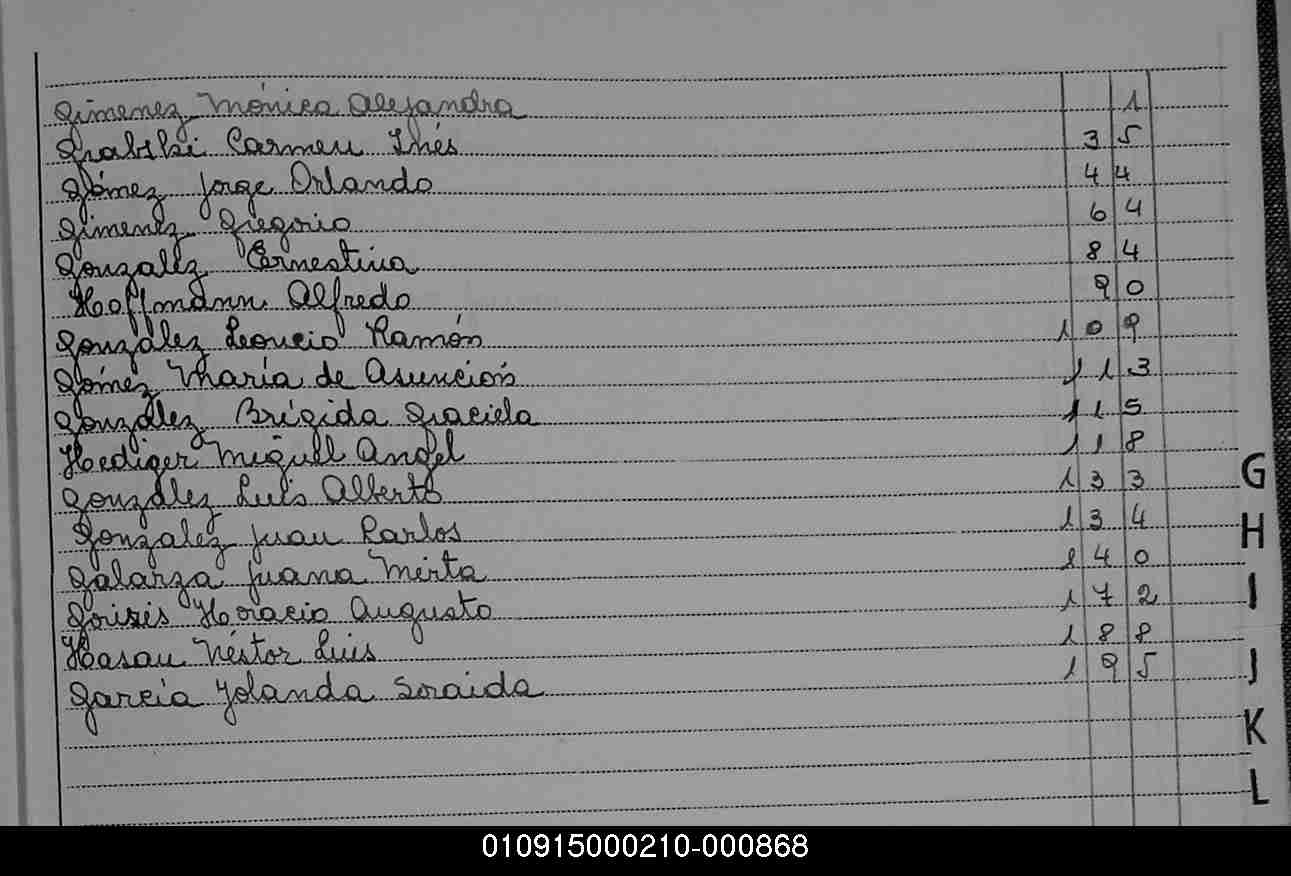 Gimenez Mónica Alejandra 1
Grabski Carmen Inés 35
Gómez Jorge Orlando 44
Gimenez Gregorio 64
Gonzalez Ernestina 84
Hoffmann Alfredo 90
González Leoncio Ramón 109
Gómez María de Asunción 113
González Brígida Graciela 115
Hediger Miguel Angel 118
González Luis Alberto 133
Gonzalez Juan Carlos 134
Galarza Juana Mirta 140
Horacio Augusto 172
Hasan Néstor Luis 188
García Yolanda Soraida 195
G
H
I
J
K
L
010915000210-000868